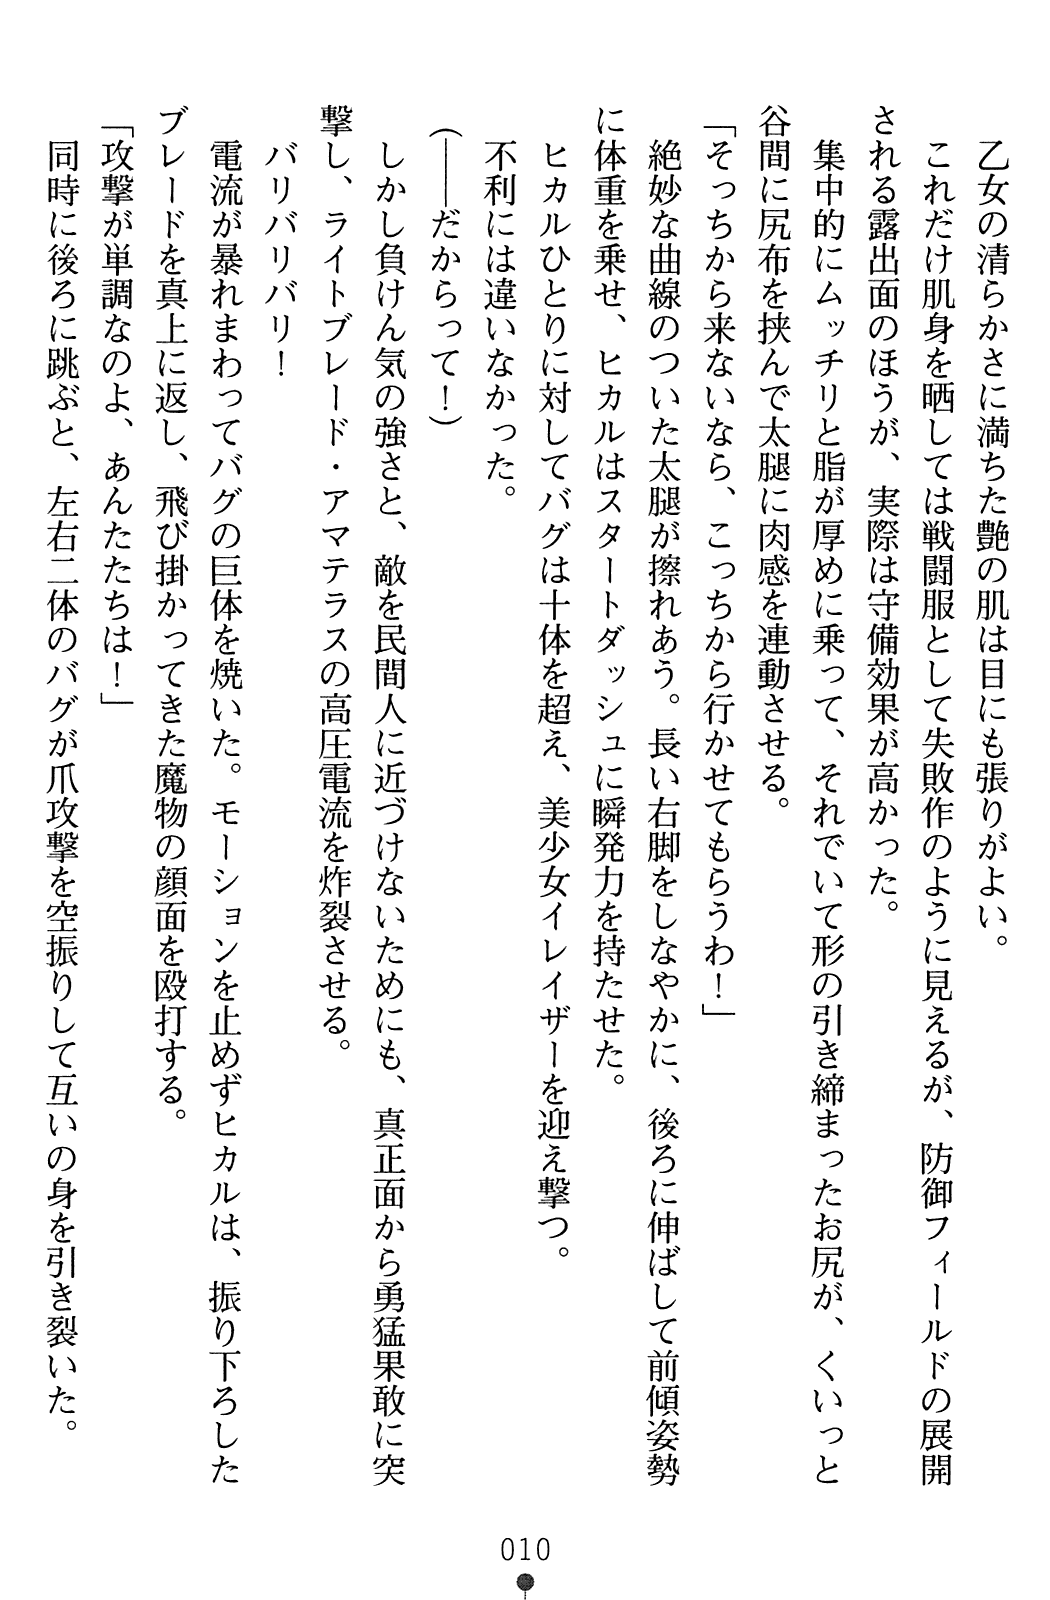 乙女の清らかさに満ちた艶の肌は目にも張りがよい。
これだけ肌身を晒しては戦闘服として失敗作のように見えるが、防御フィールドの展開
される露出面のほうが、実際は守備効果が高かった。
集中的にムッチリと脂が厚めに乗って、それでいて形の引き締まったお尻が、くいっと
谷間に尻布を挟んで太腿に肉感を連動させる。
「そっちから来ないなら、こっちから行かせてもらうわ！」
絶妙な曲線のついた太腿が擦れあう。長い右脚をしなやかに、後ろに伸ばして前傾姿勢
に体重を乗せ、ヒカルはスタートダッシュに瞬発力を持たせた。
ヒカルひとりに対してバグは十体を超え、美少女イレイザーを迎え撃つ。
不利には違いなかった。
（――だからって！）
しかし負けん気の強さと、敵を民間人に近づけないためにも、真正面から勇猛果敢に突
撃し、ライトブレード・アマテラスの高圧電流を炸裂させる。
バリバリバリ！
電流が暴れまわってバグの巨体を焼いた。モーションを止めずヒカルは、振り下ろした
ブレードを真上に返し、飛び掛かってきた魔物の顔面を殴打する。
「攻撃が単調なのよ、あんたたちは！」
同時に後ろに跳ぶと、左右二体のバグが爪攻撃を空振りして互いの身を引き裂いた。
010